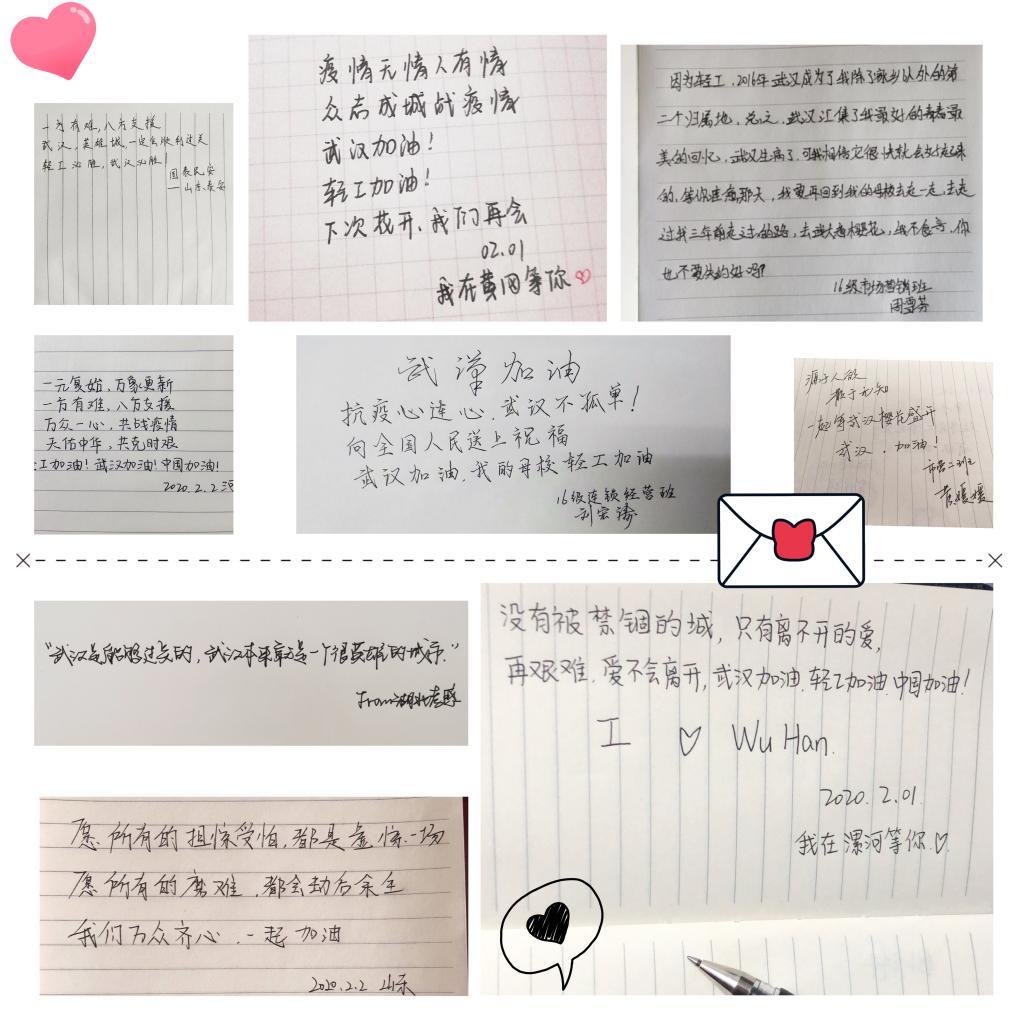 一方有难,八方支援
武汉,英雄城,一定会胜利过关
轻工必胜,武汉必胜!
国泰民安
——山东泰安
疫情无情人有情
众志成城战疫情
武汉加油!
轻工加油!
下次花开,我们再会
02.01
我在黄冈等你♡
因为轻工,2016年武汉成为了我除了家乡以外的第
二个归属地,总之,武汉汇集了我最好的青春最
美的回忆,武汉生病了,可我相信它很快就会好起来
的,等你痊愈那天,我要再回到我的母校去走一走,去走
过我三年前走过的路,去武大看樱花,我不食言,你
也不要失约好吗?
16级市场营销班
周雪芬
一元复始,万象更新
一方有难,八方支援
万众一心,共战疫情
天佑中华,共克时艰
工加油!武汉加油!中国加油!
2020.2.2
武漢加油
抗疫心连心,武汉不孤单!
向全国人民送上祝福
武汉加油,我的母校轻工加油
16级连锁经营班
刘宏
源于人欲
散于无知
一起等武汉樱花盛开
武汉,加油!
市营二班
袁媛媛
“武汉是能够过关的,武汉本来就是一个很英雄的城市.”
From湖北孝感
没有被禁锢的城,只有离不开的爱,
再艰难,爱不会离开,武汉加油,轻工加油,中国加油!
I ♡ Wu Han.
2020.2.01.
我在漯河等你.♡.
愿所有的担惊受怕,都是虚惊一场
愿所有的磨难,都会劫后余生
我们万众齐心,一起加油
2020.2.2 山东